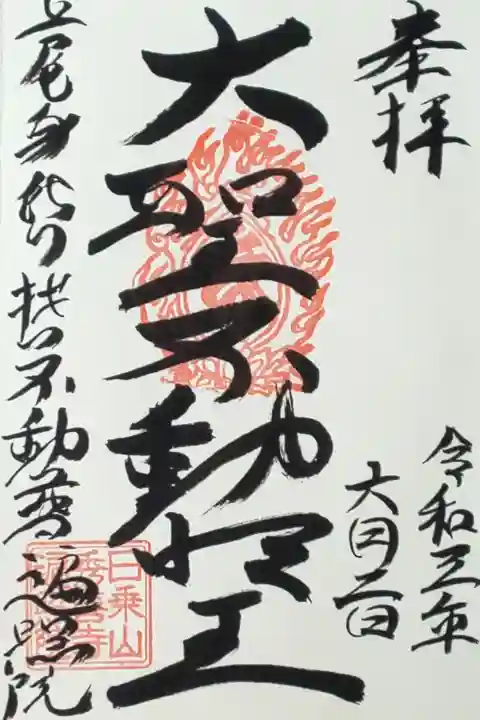 奉拝
令和三年
六月二日
大聖不動明王
上尾身代り不動尊 遍照院
日乗山
秀善寺
遍照院